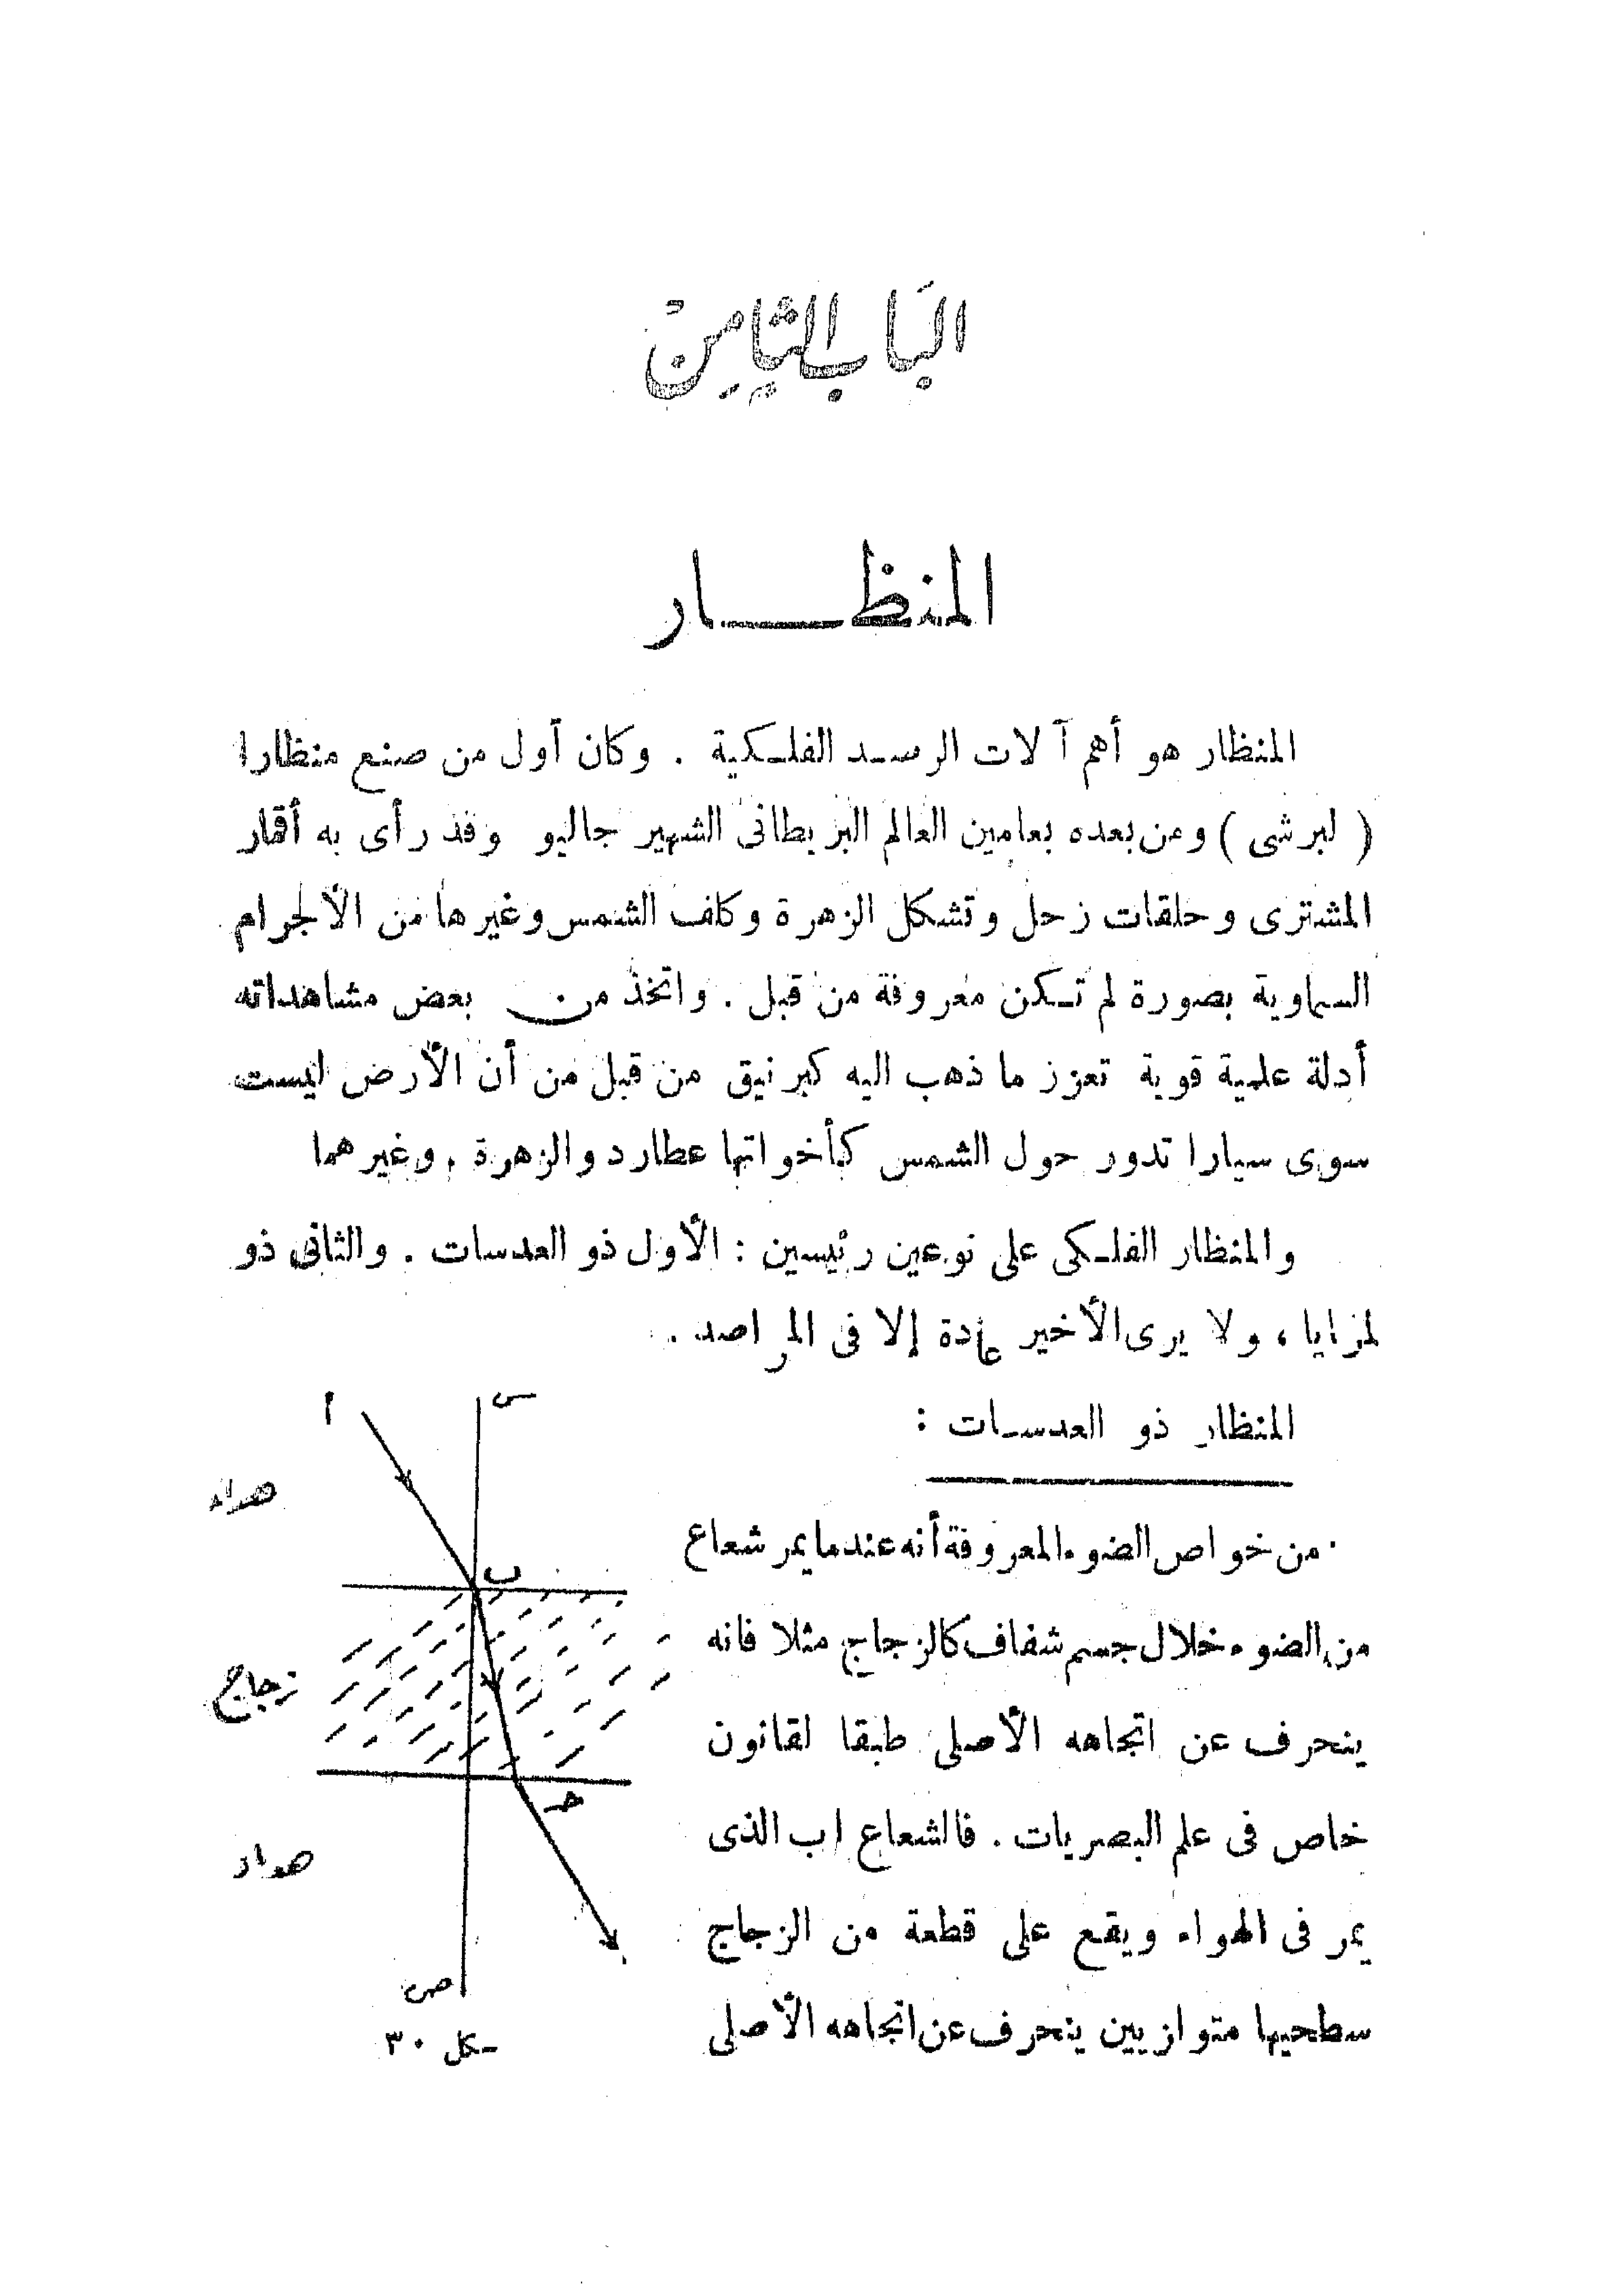 الباب الثامن
المنظار
المنظار هو أهم آلات الرصد الفلكية . وكان أول من صنع منظارا
( لبرشى ) ومن بعده بعامين العالم البريطانى الشهير جاليو وقد رأى به أقمار
المشترى وحلقات زحل وتشكل الزهرة وكلف الشمس وغيرها من الألجرام
السماوية بصورة لم تكن معروفة من قبل . واتخذ من بعض مشاهداته
أدلة علمية قوية تعزز ما ذهب اليه كبرنيق من قبل من أن الأرض ليست
سوى سيارا تدور حول الشمس كأخواتها عطارد والزهرة . وغيرهما
والمنظار الفلكى على نوعين رئيسين : الأول ذو العدسات . والثانى ذو
لمزايا ، ولا يرى الأخير عادة إلا فى المراصد .
المنظار ذو العدسات :
من خواص الضوء المعروفة أنه عندما يمر شعاع
من الضوء خلال جسم شفاف كالزجاج مثلا فانه
ينحرف عن اتجاهه الأصلى طبقا لقانون
خاص فى علم البصريات . فالشعاع اب الذى
يمر فى الهواء ويقع على قطعة من الزجاج
سطحيها متوازيين ينحرف عن اتجاهه الأصلى
أ
س
هواء
ب
زجاج
حـ
هواء
ص
ـكل ٣٠